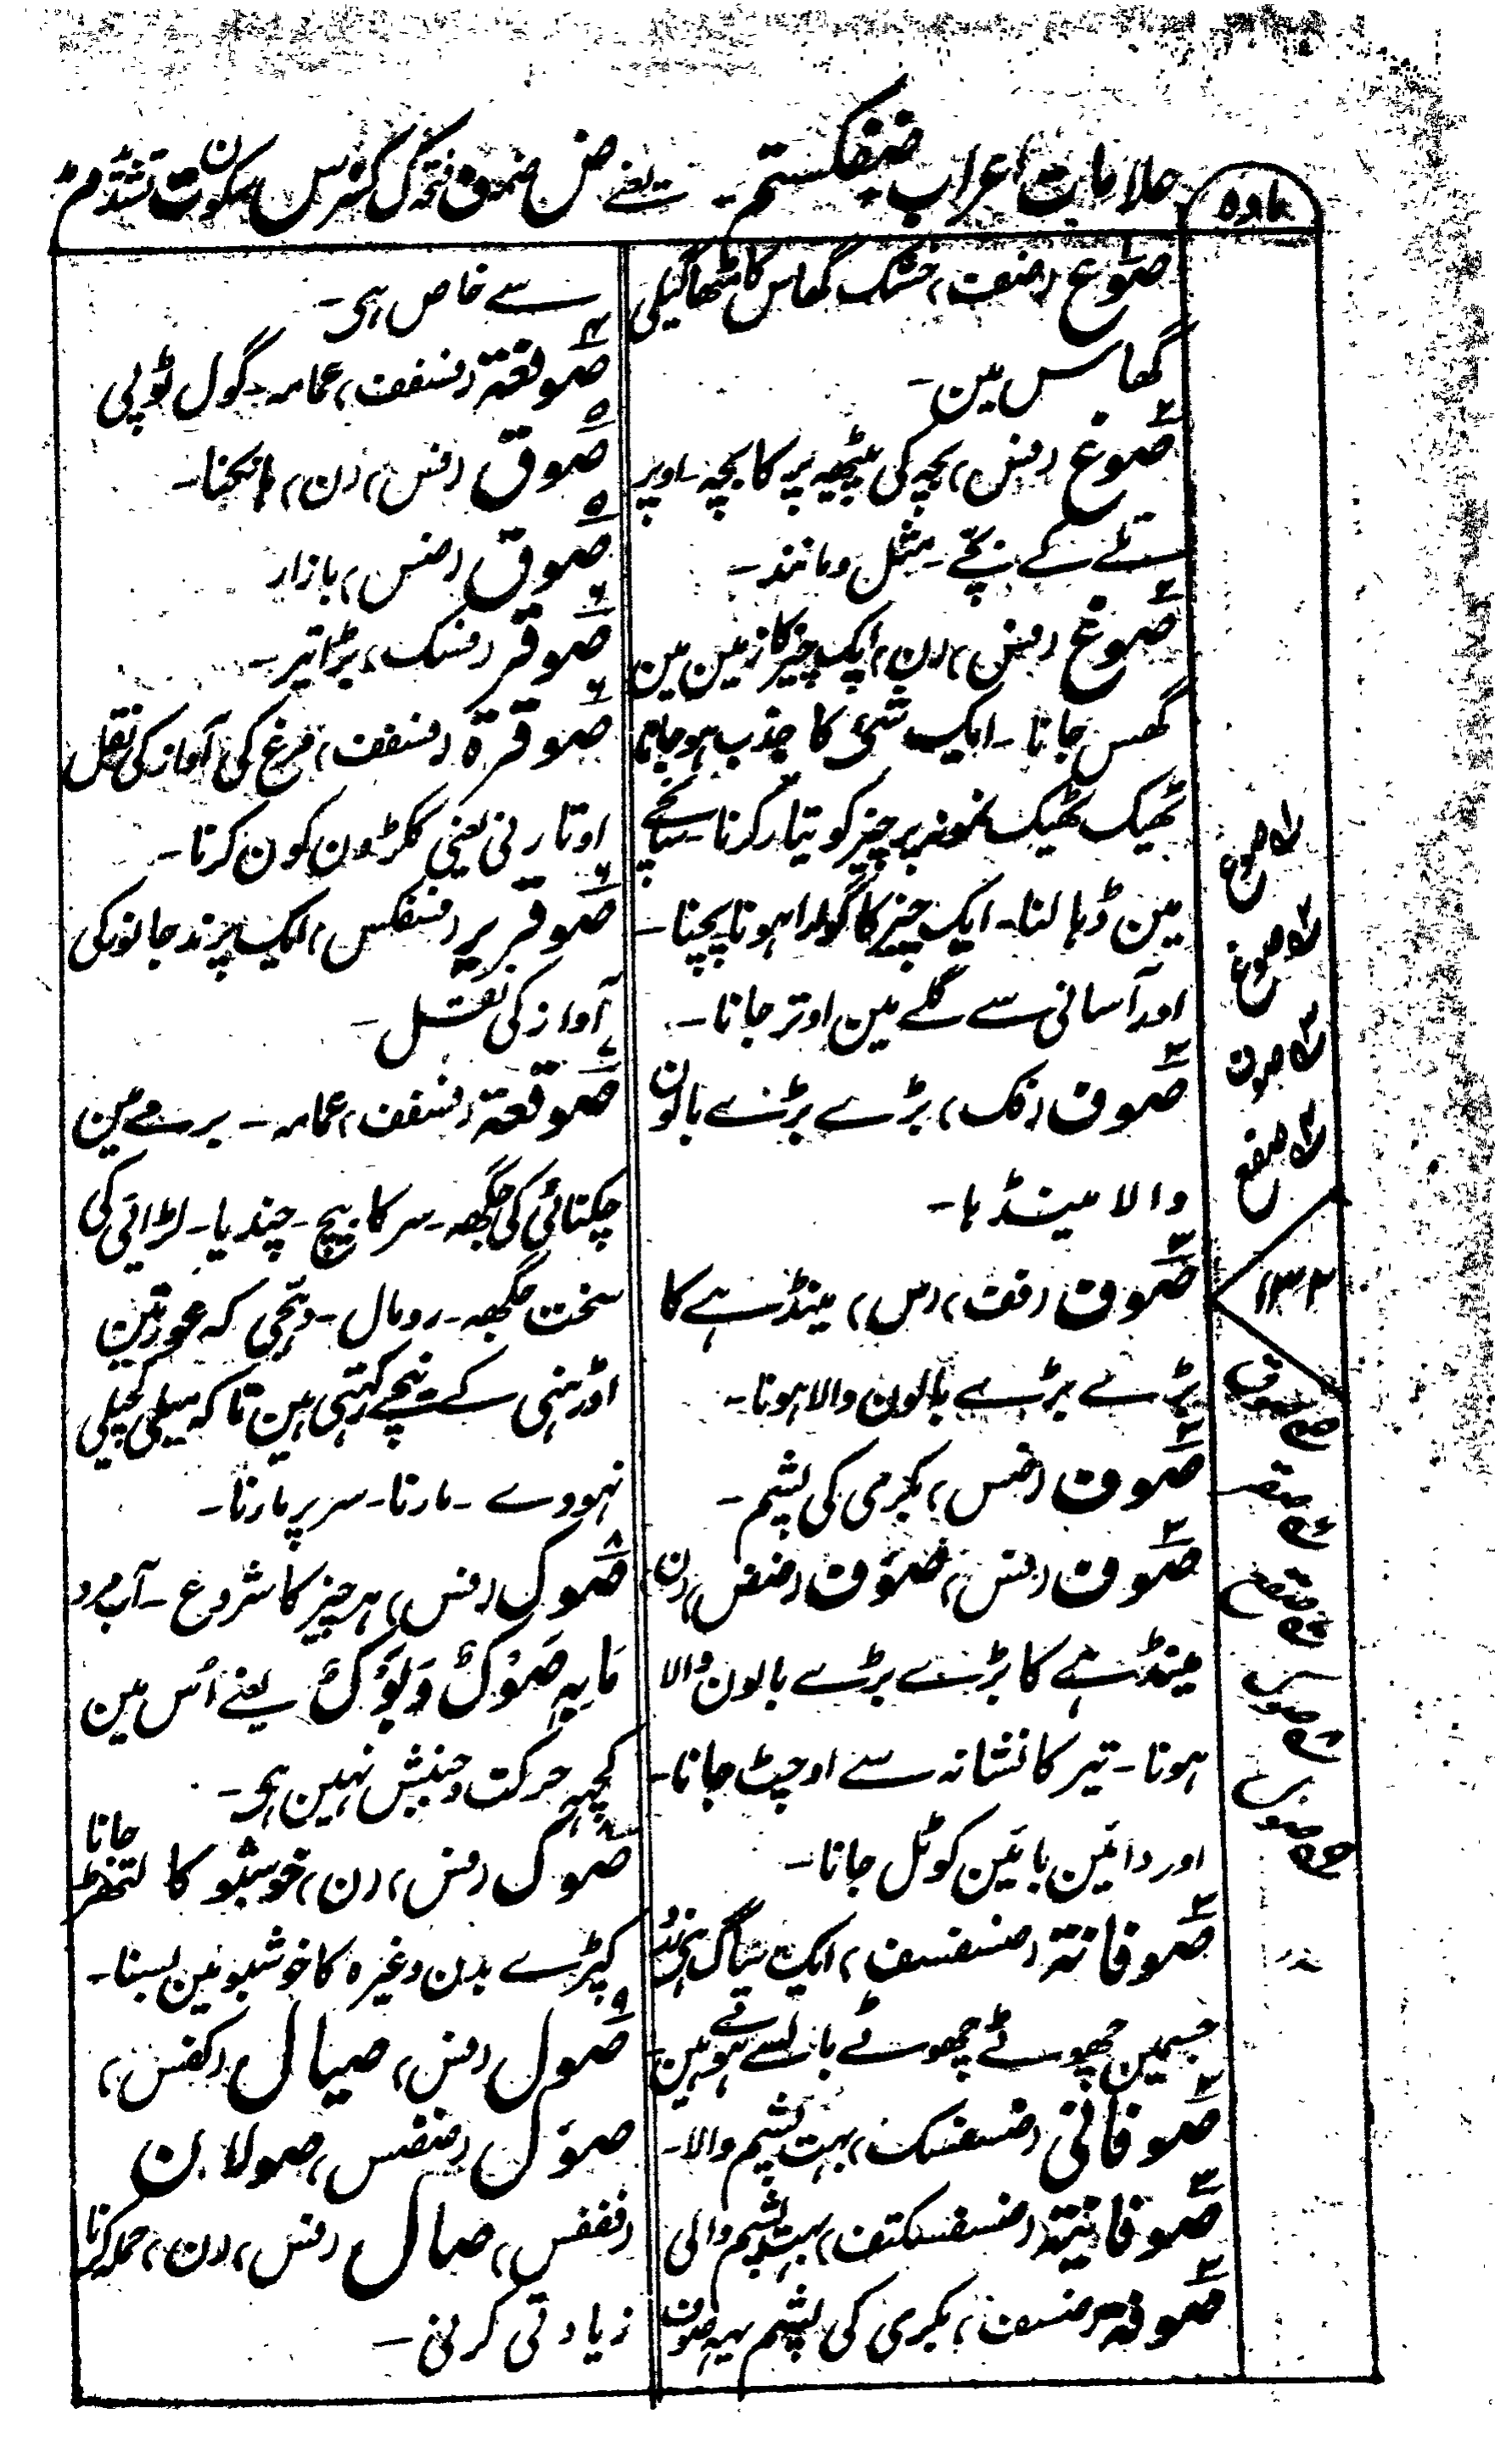 علامات اعراب ضفکستم۔ یعنے ض ضمہ ف فتحہ ک کسر س سکون ت تشدد م مد
مادہ
صوع (ضف) خشک گھاس کا مٹھا گیلی
گھاس مین۔
صوغ (فس) بچہ کی پیٹھیہ پر کا بچہ۔ اوپر
تلے کے بچے۔ مثل ومانند۔
صوغ (فس) (ن) ایک چیز کا زمین مین
گھس جانا۔ ایک شئ کا جذب ہوجانا
ٹھیک ٹھیک نمونہ پر چیز کو تیار کرنا۔ سانچے
مین ڈہالنا۔ ایک چیز کا گوارا ہونا پچنا۔
اور آسانی سے گلے مین اوتر جانا۔
صوف (فک) بڑے بڑے بالون
والا مینڈہا۔
صوف (فف) (س) مینڈہے کا
بڑے بڑے بالون والا ہونا۔
صوف (ضس) بکری کی پشم۔
صوف (فس) صؤوف (ضض) (ن)
مینڈہے کا بڑے بڑے بالون والا
ہونا۔ تیر کا نشانہ سے اوچٹ جانا۔
اور دائین بائین کو ٹل جانا۔
صوفانة (ضسفسف) ایک ساگ ہی
جسمین چھوٹے چھوٹے بال سے ہوتے ہین
صوفانی (ضسفسک) بہت پشم والا۔
صوفانیة (ضسفسکتف) بہت پشم والی
صوفة (ضسف) بکری کی پشم یہہ صوف
سے خاص ہی۔
صوقعة (فسفف) عمامہ۔ گول ٹوپی
صوق (فس) (ن) ہانکنا۔
صوق (ضس) بازار
صوقر (فسک) بڑا تبر۔
صوقرة (فسفف) مرغ کی آواز کی نقل
اوتارنی یعنی ککڑون کون کرنا۔
صوقریر (فسفکس) ایک پرند جانور کی
آواز کی نقل۔
صوقعة (فسفف) عمامہ۔ برمے مین
چکنائی کی جگھہ۔ سر کا بیچ۔ چندیا۔ لڑائی کی
سخت جگھہ۔ رومال۔ دہجی کہ عورتین
اوڑہنی کے نیچے رکہتی ہین تاکہ میلی کچیلی
نہووے۔ مارنا۔ سر پر مارنا۔
صوک (فس) ہر چیز کا شروع۔ آب مرد
مَا بِہِ صَوْکٌ وَ بَوْکٌ یعنے اُس مین
کچہہ حرکت وجنبش نہین ہی۔
صوک (فس) (ن) خوشبو کا لتھڑ جانا
کپڑے بدن وغیرہ کا خوشبو مین بسنا۔
صول (فس) صیال (کفس)
صؤل (ضفس) صولان
(فففس) صال (فس) (ن) حملہ کرنا
زیادتی کرنی۔
صوع
صوغ
صوف
صقع
۱۳۲
صوق
صقر
صقع
صوک
صول